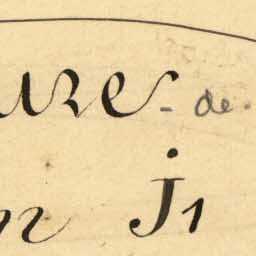 ure - de.
n j1